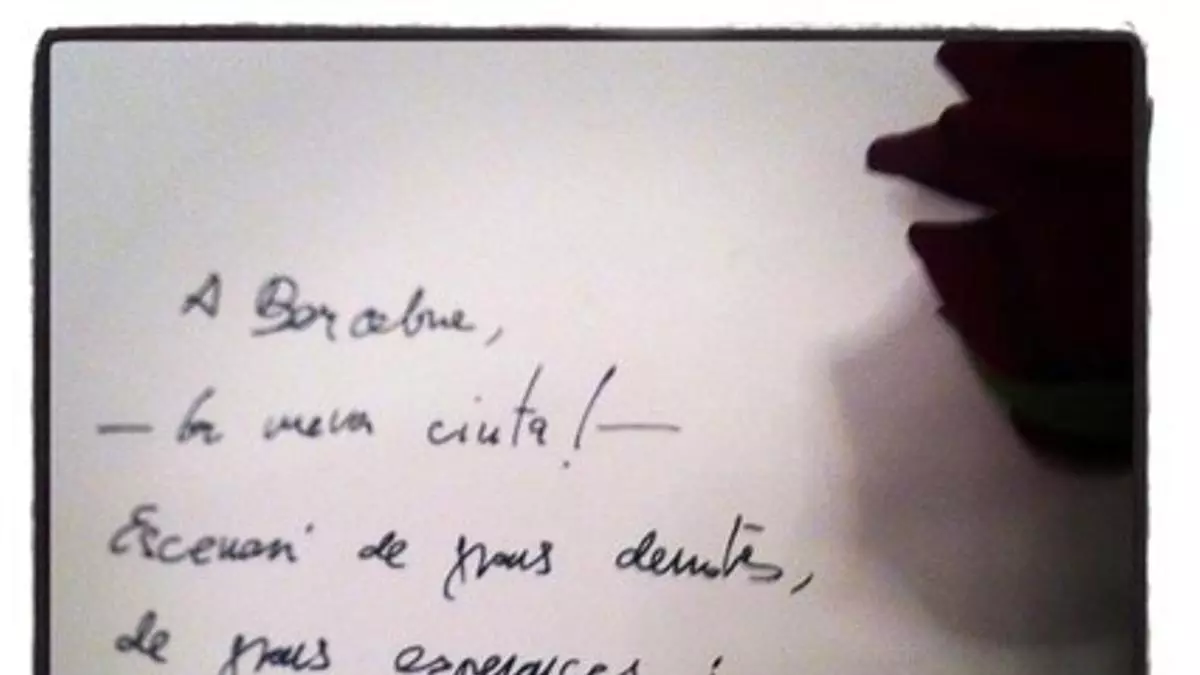 A Barcelona,
— la meva ciutat! —
Escenari de grans derrotes,
de grans esperances i